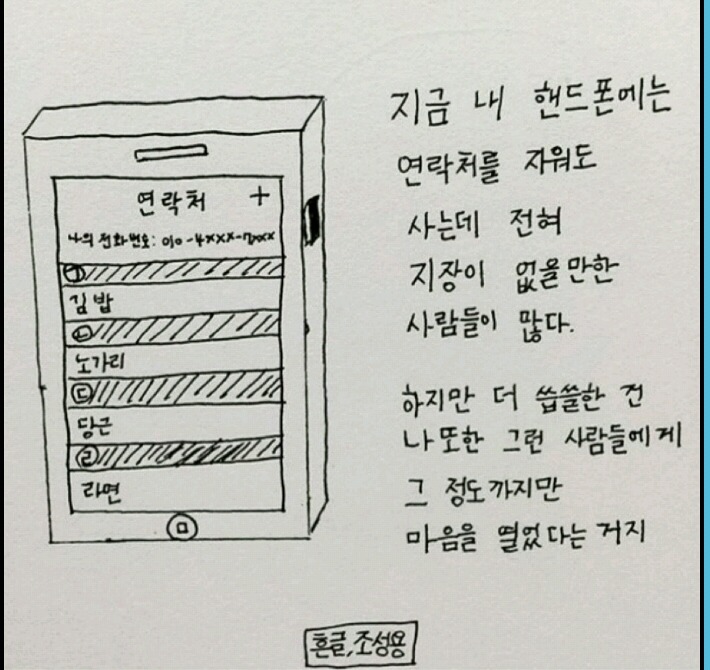 연락처 +
나의 전화번호: 010-4xxx-7xxx
ㄱ
김밥
ㄴ
노가리
ㄷ
당근
ㄹ
라면
지금 내 핸드폰에는
연락처를 지워도
사는데 전혀
지장이 없을만한
사람들이 많다.
하지만 더 씁쓸한 건
나 또한 그런 사람들에게
그 정도까지만
마음을 열었다는 거지
흔글, 조성용